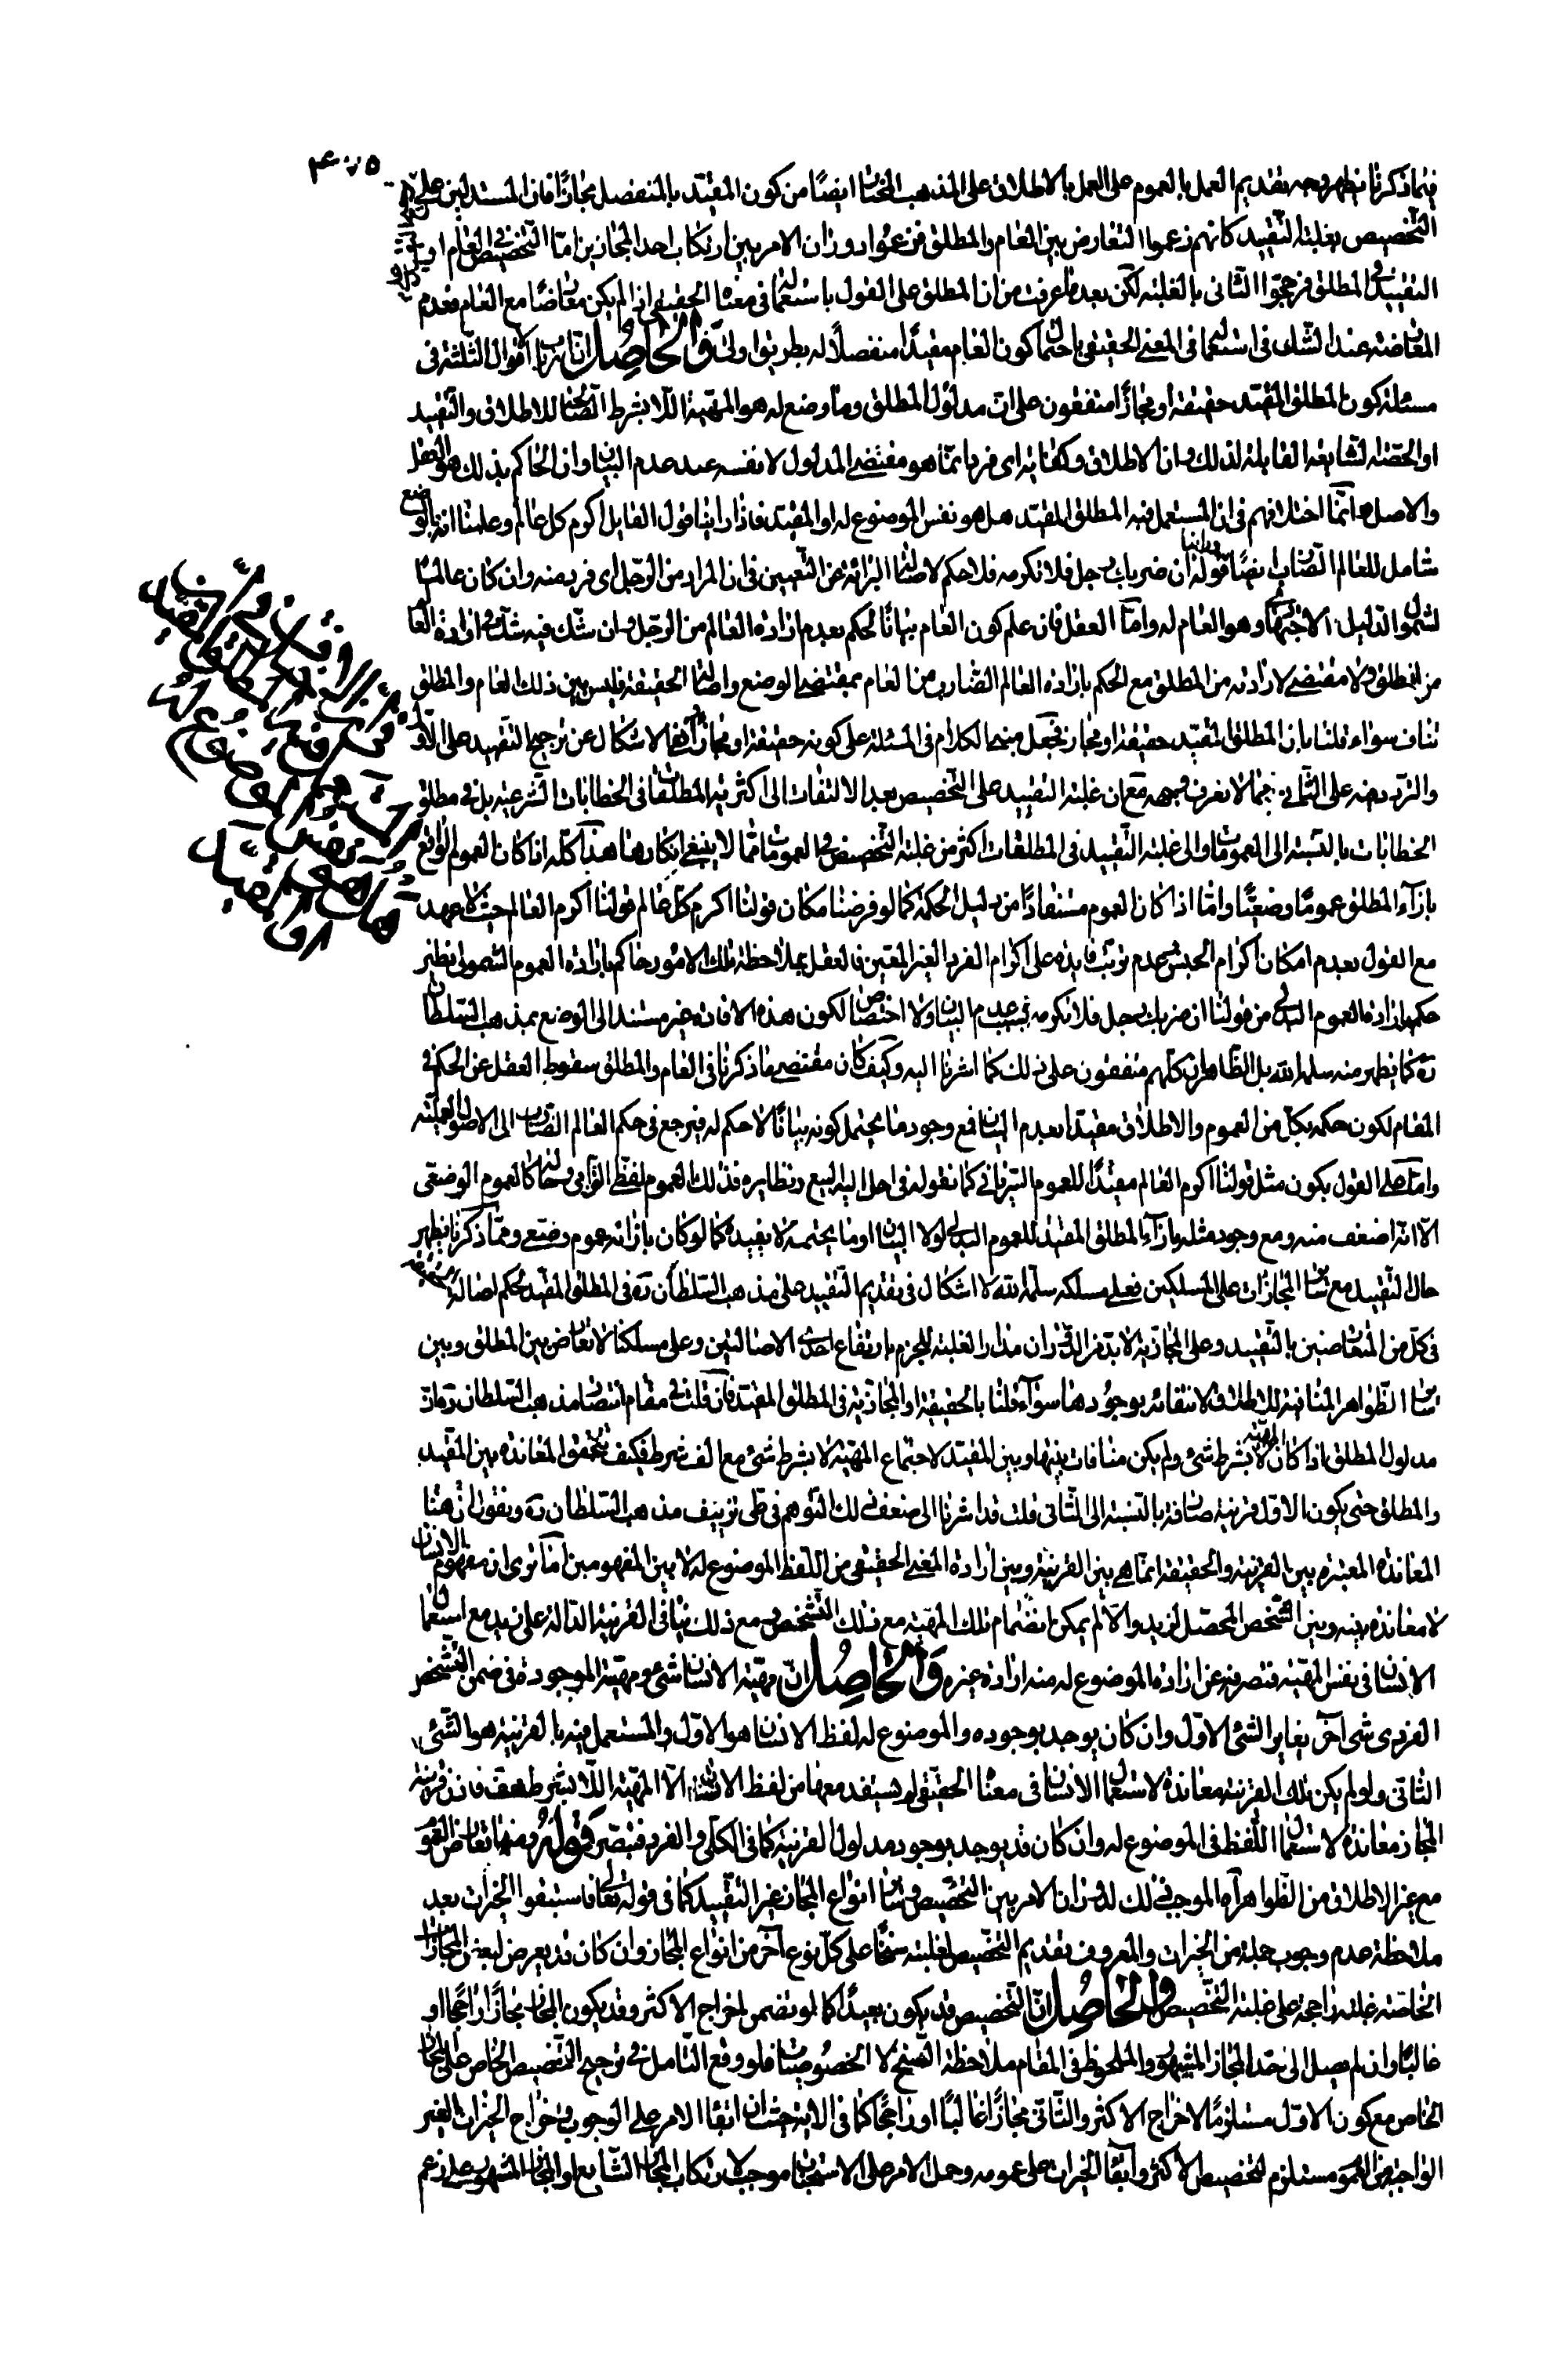 فيما ذكرنا يظهر وجه تقديم العمل بالعموم على العمل بالاطلاق على المذهب المختار ايضًا من كون المقيّد بالمنفصل مجازًا فان المستدلين على
التخصيص بغلبة التقييد كانهم زعموا التعارض بين العام والمطلق فزعموا دوران الامر بين ارتكاب احد المجازين امّا التخصيص في العام او
التقييد في المطلق فرجحوا الثانى بالغلبة لكن بعد ما عرفت من ان المطلق على القول باستعماله فى معناه الحقيقى اذا لم يكن معارضًا مع العام فعدم
المعارضة عند الشك فى استعماله فى المعنى الحقيقى باحتمال كون العام مقيدًا منفصلًا له بطريق اولى والحاصل ان ارباب الاقوال الثلثة فى
مسئلة كون المطلق المقيّد حقيقة او مجازًا متفقون على ان مدلول المطلق وما وضع له هو المهيّة اللا بشرط الصالحة للاطلاق والتقييد
او الحصّة الشايعة القابلة لذلك وان الاطلاق وكفاية اى فرد انّما هو مقتضى المدلول لا نفسه عند عدم البيان وان الحاكم بذلك هو العقل
والاصل انّما اختلافهم فى ان المستعمل فيه المطلق المقيّد هل هو نفس الموضوع له او المقيّد فاذا راينا قول القايل اكرم كل عالم وعلمنا انه بالوضع
شامل للعالم الضارب ايضًا وراينا قوله ان ضربك رجل فلا تكرمه فلا حكم لاصالة البرائة عن التعيين فى ان المراد من الرجل اى فرد منه وان كان عالمًا
لشمول الدليل الاجتهادى وهو العام له وامّا العقل فان علم كون العام بيانًا لحكم بعدم ارادة العالم من الرجل وان شك فيه شك فى ارادة العالم
من المطلق ولا مقتضى لارادته من المطلق مع الحكم بارادة العالم الضارب من العام بمقتضى الوضع واصالة الحقيقة فليس بين ذلك العام والمطلق
تناف سواء قلنا بان المطلق المقيّد حقيقة او مجاز فجعل مبنى الكلام فى المسئلة على كونه حقيقة او مجازًا ورفع الاشكال عن ترجيح التقييد على الاول
والترديد فيه على الثانى ممّا لا نعرف وجهه مع ان غلبة التقييد على التخصيص بعد الالتفات الى اكثرية المطلقات فى الخطابات الشرعية بل فى مطلق
الخطابات بالنسبة الى العمومات والى غلبة التقييد فى المطلقات اكثر من غلبة التخصيص فى العمومات ممّا لا ينبغى انكارها هذا كلّه اذا كان العموم الواقع
بازآء المطلق عمومًا وضعيًّا وامّا اذا كان العموم مستفادًا من دليل الحكمة كما لو فرضنا مكان قولنا اكرم كل عالم قولنا اكرم العالم حيث لا عهد
مع القول بعدم امكان اكرام الجنس وعدم ترتب فايدة على اكرام الفرد الغير المعين فالعقل بملاحظة تلك الامور حاكم بارادة العموم الشمولى نظير
حكمه بارادة العموم البدلى من قولنا ان ضربك رجل فلا تكرمه بسبب عدم البيان ولا اختصاص لكون هذه الافادة غير مستند الى الوضع بمذهب السلطان
ره كما يظهر منه سلمه الله بل الظاهر ان كلهم متفقون على ذلك كما اشرنا اليه وكيف كان مقتضى ما ذكرنا فى العام والمطلق سقوط العقل عن الحكم فى
المقام لكون حكمه بكل من العموم والاطلاق مقيّدا بعدم البيان فمع وجود ما يحتمل كونه بيانًا لا حكم له فيرجع فى حكم العالم الضارب الى الاصول العملية
وامّا على القول بكون مثل قولنا اكرم العالم مفيدًا للعموم السريانى كما نقوله فى احل الله البيع ونظايره فذلك العموم لفظى التزامى وحاله كالعموم الوضعى
الّا انّه اضعف منه ومع وجود مثله بازآء المطلق المفيد للعموم البدلى لولا البيان او ما يحتمله لا يفيده كما لو كان بازائه عموم وضعى وممّا ذكرنا يظهر
حال التقييد مع سائر المجازات على المسلكين فعلى مسلكه سلّمه الله لا اشكال فى تقديم التقييد على مذهب السلطان ره فى المطلق المقيّد بحكم اصالة الحقيقة
فى كل من المتعارضين بالتقييد وعلى المجازية لا بدّ من الدوران مدار الغلبة للجزم بارتفاع احدى الاصالتين وعلى مسلكنا لا تعارض بين المطلق وبين
سائر الظّواهر المنافية للاطلاق لانتفائه بوجودها سوآء قلنا بالحقيقة او المجازية فى المطلق المقيّد فان قلت فى مقام انتصار مذهب السلطان ره ان
مدلول المطلق اذا كان المهيّة لا بشرط شئ ولم يكن منافات بينها وبين المقيّد لاجتماع المهيّة لا بشرط شئ مع الف شرط فكيف يتحقق المعاندة بين المقيد
والمطلق حتى يكون الاول قرينة صارفة بالنسبة الى الثانى قلت قد اشرنا الى ضعف ذلك التوهم فى طى تزييف مذهب السلطان ره ونقول هنا
المعاندة المعتبرة بين القرينة والحقيقة انّما هى بين القرينة وبين ارادة المعنى الحقيقى من اللّفظ الموضوع له لا بين المفهومين اما ترى ان مفهوم الانسان
لا معاندة بينه وبين الشخص المحصّل لزيد والّا لم يمكن انضمام تلك المهيّة مع ذلك التشخص ومع ذلك ينافى القرينة الدالة على زيد مع استعمال
الانسان فى نفس المهيّة فتصرفه عن ارادة الموضوع له منه ارادة غيره والحاصل انّ مهيّة الانسان شئ ومهيّته الموجودة فى ضمن التشخص
الفردى شئ آخر يغاير الشئ الاوّل وان كان يوجد بوجوده والموضوع له لفظ الانسان هو الاوّل والمستعمل فيه بالقرينة هو الشئ
الثانى ولو لم يكن تلك القرينة معاندة لاستعمال الانسان فى معناه الحقيقى لم يستفد معها من لفظ الانسان الّا المهيّة اللّا بشرط فقط فاذن قرينة
المجاز معاندة لاستعمال اللّفظ فى الموضوع له وان كان قد يوجد بوجود مدلول القرينة كما فى الكلّى والفرد فتبصّر قوله ومنها تعارض العموم
مع غير الاطلاق من الظّواهر آه الموجب لذلك الدوران الامر بين التخصيص وسائر انواع المجاز غير التقييد كما فى قوله تعالى فاستبقوا الخيرات بعد
ملاحظة عدم وجوب جملة من الخيرات والمعروف تقديم التخصيص لغلبته سنخًا على كلّ نوع آخر من انواع المجاز وان كان قد يعرض لبعض المجازات
الخاصّة غلبة راجحة على غلبة التخصيص والحاصل انّ التخصيص قد يكون بعيدًا كما لو تضمن اخراج الاكثر وقد يكون المجاز مجازًا راجحًا او
غالبًا وان لم يصل الى حدّ المجاز المشهور والملحوظ فى المقام ملاحظة السنخ لا الخصوصيّات فلو وقع التامل فى ترجيح التخصيص الخاص على المجاز
الخاص مع كون الاوّل مستلزمًا لاخراج الاكثر والثّانى مجازًا غالبًا او راجحًا كما فى الاية حيث ان ابقاء الامر على الوجوب واخراج الخيرات الغير
الواجبة من العموم مستلزم لتخصيص الاكثر وابقاء الخيرات على عمومه وحمل الامر على الاستحباب موجب لارتكاب المجاز الشايع او المجاز المشهور على زعم